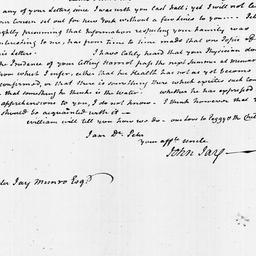 any of your Letters, since I was with you last Fall; yet I will not let
our Cousin set out for New York without a few Lines to you ---
ghtly presuming that Information respecting your Family was
interesting to me, has from Time to Time made that one Topic of
his Letters. I have lately heard that your Physician do
the Prudence of your letting Harriot pass the next Summer at
from which I infer, either that her Health has not as yet become
confirmed, or that there is something
that something he thinks is the Water. whether he has expressed
apprehensions to you, I do not know. I think however that y
should be acquainted with it --
William will tell you how we do - our love to Peggy & the Chil
I am Dr. Peter
your affte. uncle
John Jay
Peter Jay Munro Esqr.